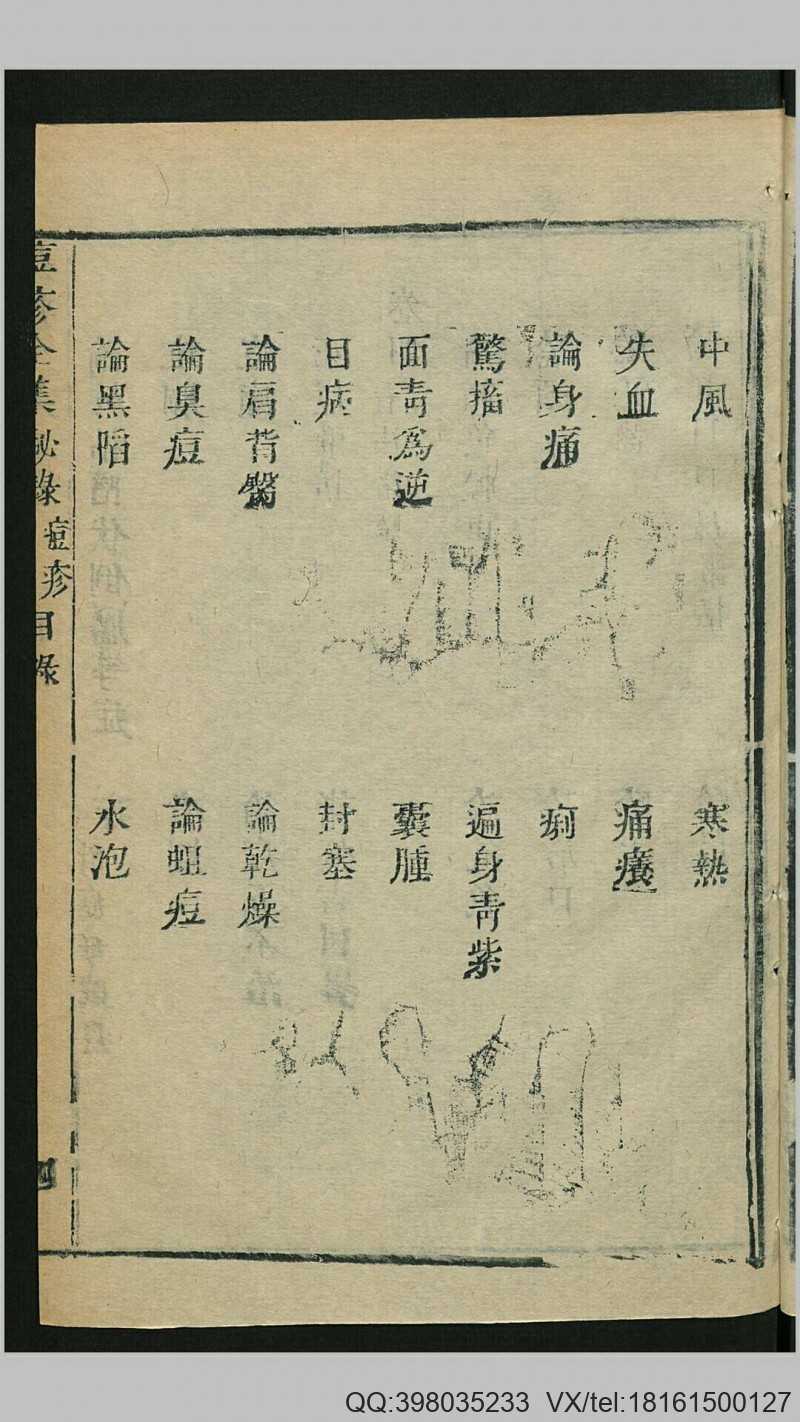 中風
寒熱
失血
痛癢
論身痛
痢
驚搐
遍身青紫
面青爲逆
囊腫
目病
封塞
論肩背臀
論乾燥
論臭痘
論蛆痘
論黑陷
水泡
痘疹全集祕錄痘疹目錄
QQ:398035233 VX/tel:18161500127